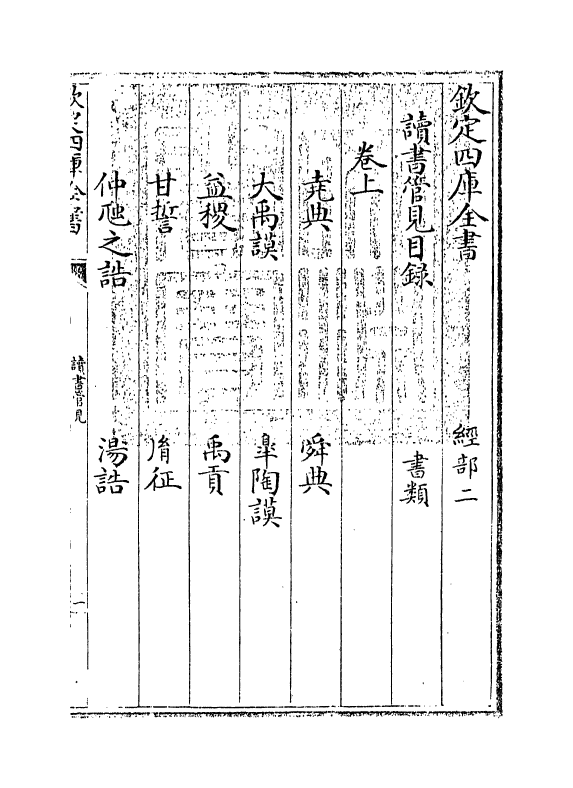 欽定四庫全書　經部二
讀書管見目錄　書類
卷上
堯典　舜典
大禹謨　皐陶謨
益稷　禹貢
甘誓　𦙍征
仲虺之誥　湯誥
欽定四庫全書
讀書管見
一